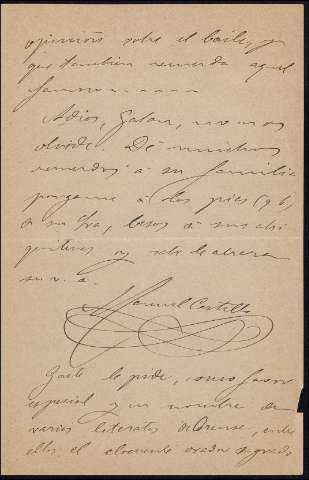 opiniones sobre el baile, y
que tambien recuerda aquel
famoso - - - - -
Adios, Galan, no me
olvide. Dé muchos
recuerdos á su familia
pongame á los pies (q b)
á su Sra, besos á sus chi
quitines y
su a.
Manuel Castillo
Gaste le pide, como favor
especial y en nombre de
varios literatos de Orense, entre
ellos el elocuente orador sagrado